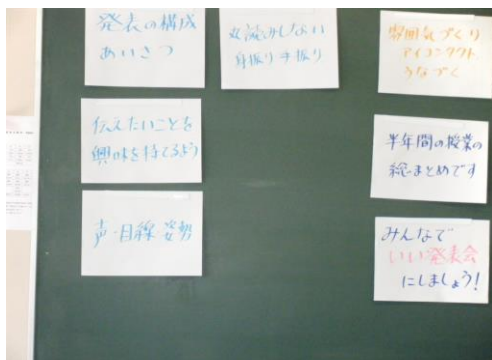 発表の構成
あいさつ
伝えたいことを
興味を持てるよう
声・目線・姿勢
丸読みしない
身振り手振り
雰囲気づくり
アイコンタクト
うなづく
半年間の授業の
総まとめです
みんなで
いい発表会
にしましょう!